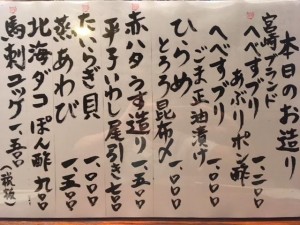 本日のお造り
宮崎ブランド
へべすブリ 一、二〇〇
あぶりポン酢
へべすブリ
ごま正油漬け 一、〇〇〇
ひらめ
とろろ昆布〆 一、〇〇〇
赤ハタうす造り 一、五〇〇
平子いわし尾引き 七〇〇
たいらぎ貝 一、〇〇〇
蒸あわび 一、五〇〇
北海ダコぽん酢 九〇〇
馬刺ユッケ 一、五〇〇
(税抜)